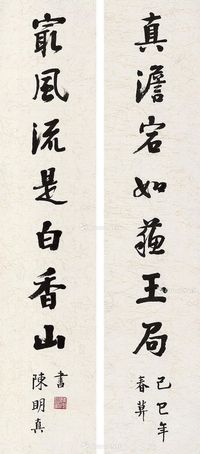 真澹宕如蘇玉局
己巳年
春
㝡風流是白香山
書
陳明真